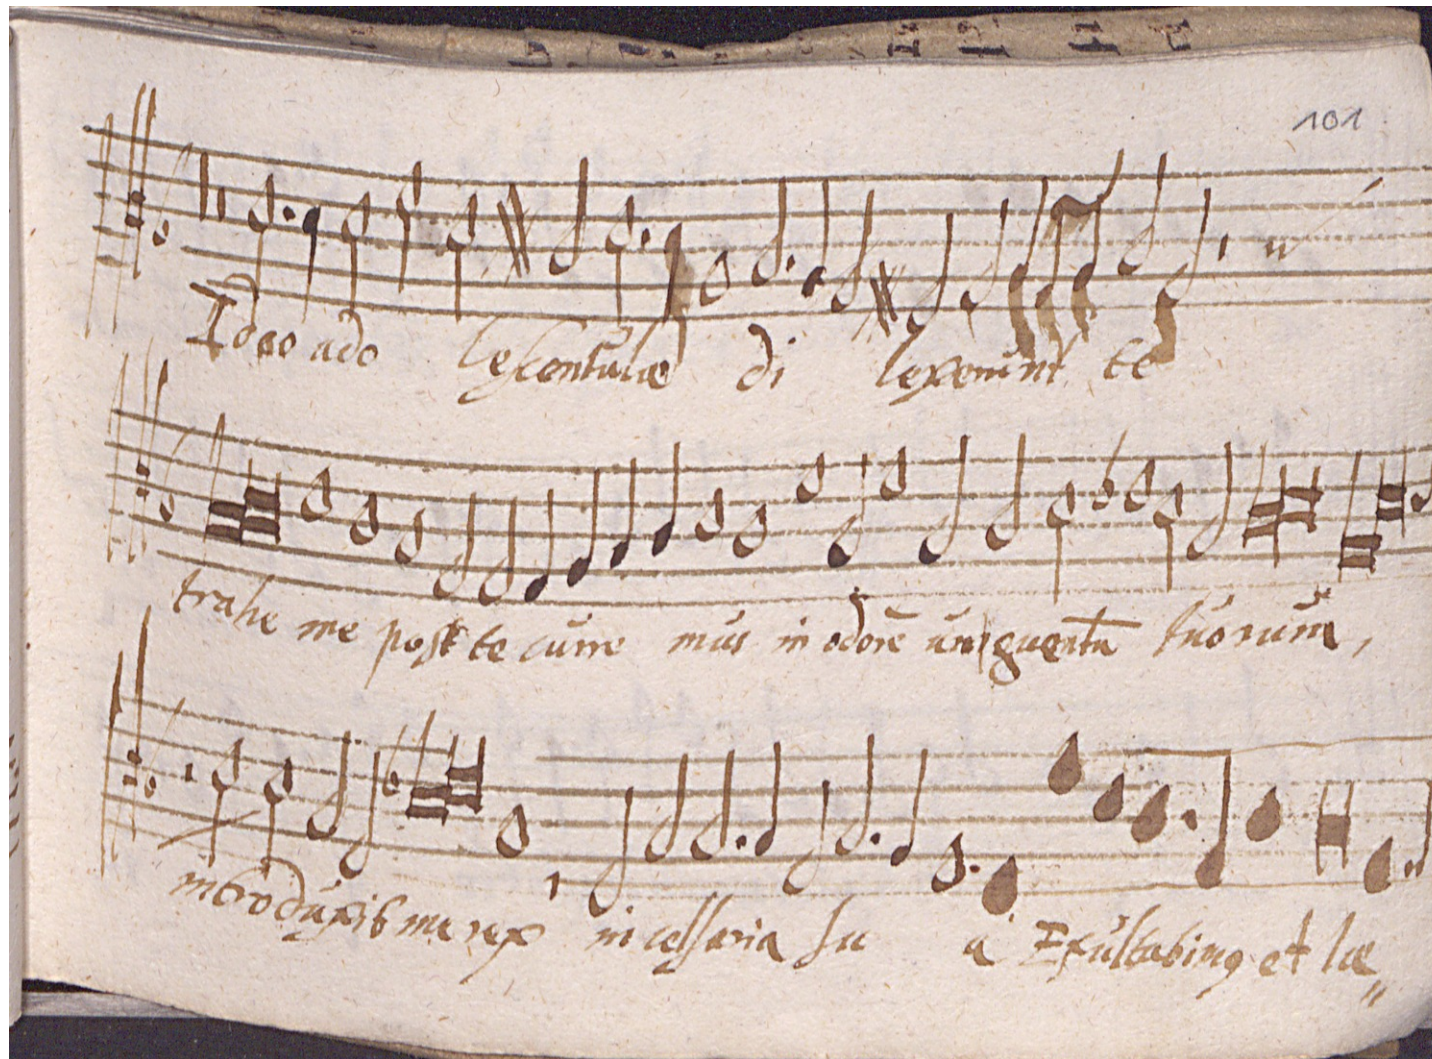 101
Ideo ado lescentulæ di lexerunt te
trahe me post te curre mus in odorē unguentū tuorum,
introduxit me rex in cellaria su a Exultabimq et læ„